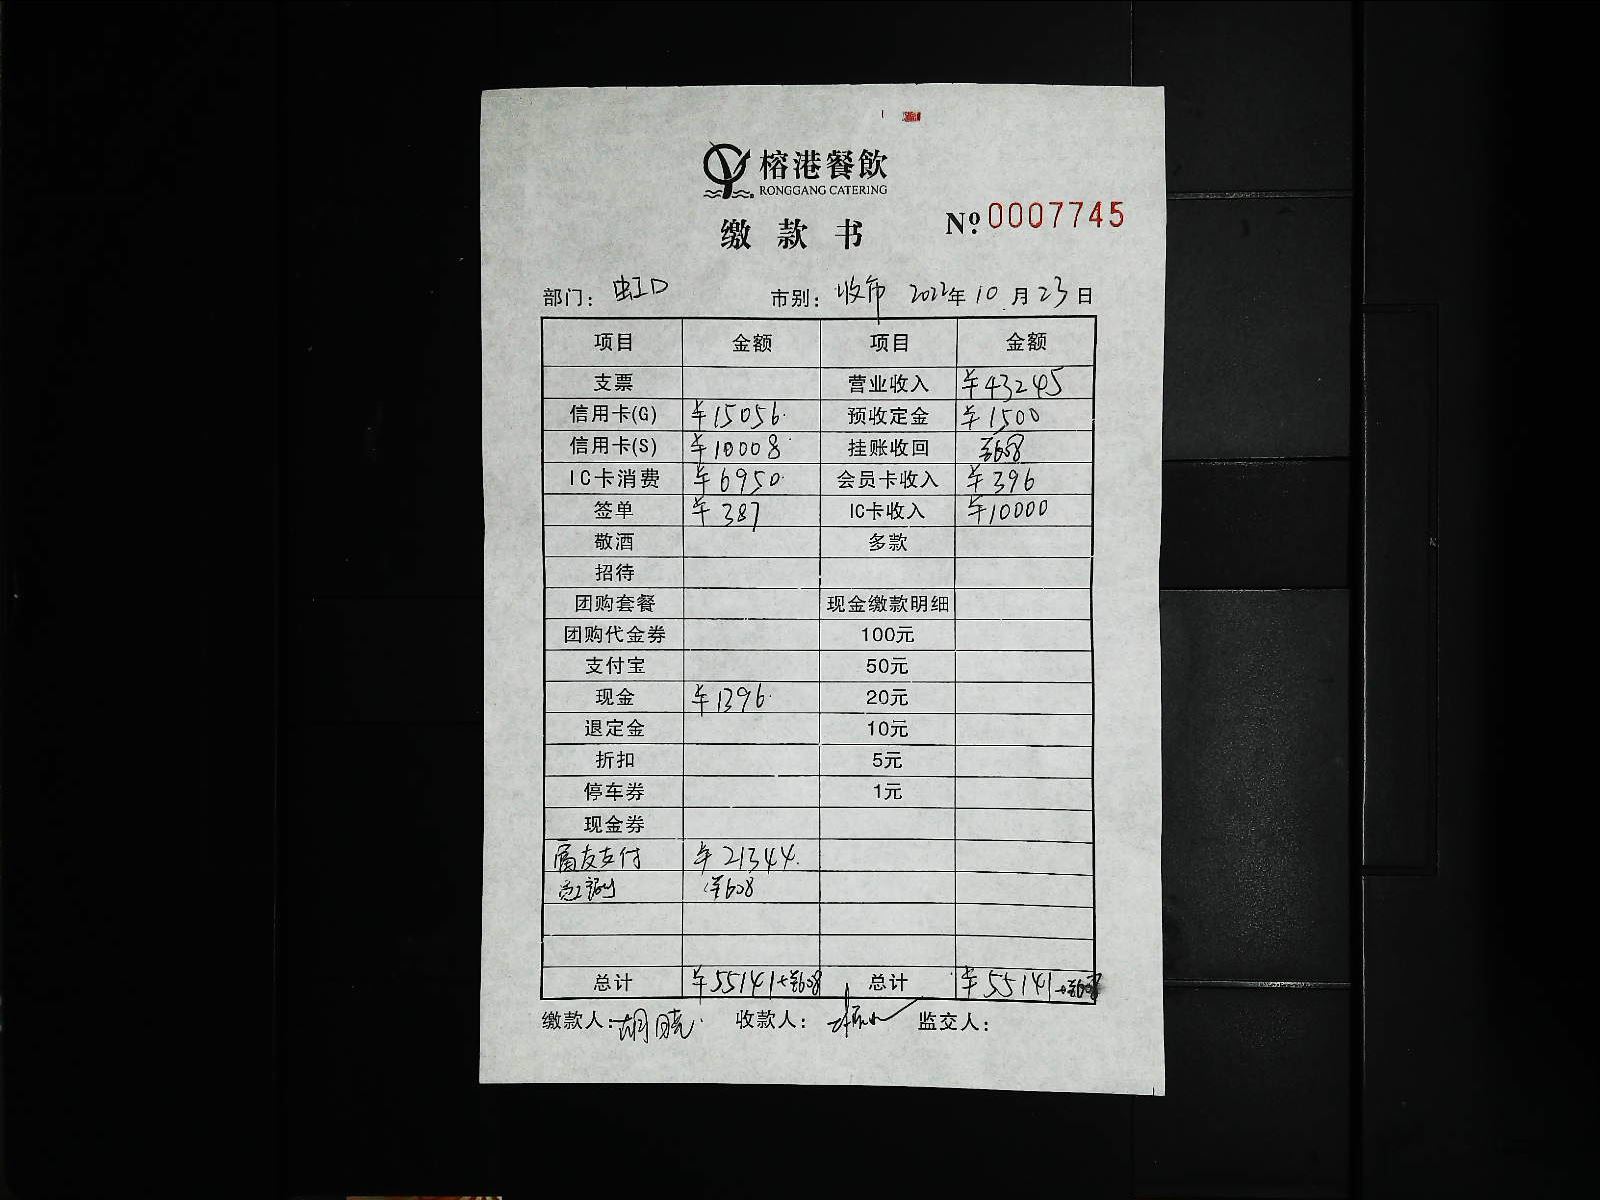 榕港餐飲
RONGGANG CATERING
缴款书
№ 0007745
部门: 虹口 市别: 收市 2022年10月23日
项目 金额 项目 金额
支票 营业收入 ¥43245
信用卡(G) ¥15056 预收定金 ¥1500
信用卡(S) ¥10008 挂账收回 ¥608
IC卡消费 ¥6950 会员卡收入 ¥396
签单 ¥387 IC卡收入 ¥10000
敬酒 多款
招待
团购套餐 现金缴款明细
团购代金券 100元
支付宝 50元
现金 ¥1396 20元
退定金 10元
折扣 5元
停车券 1元
现金券
支付 ¥21344
¥608
总计 ¥55141+¥608 总计 ¥55141+¥608
缴款人: 胡晓 收款人: 监交人: